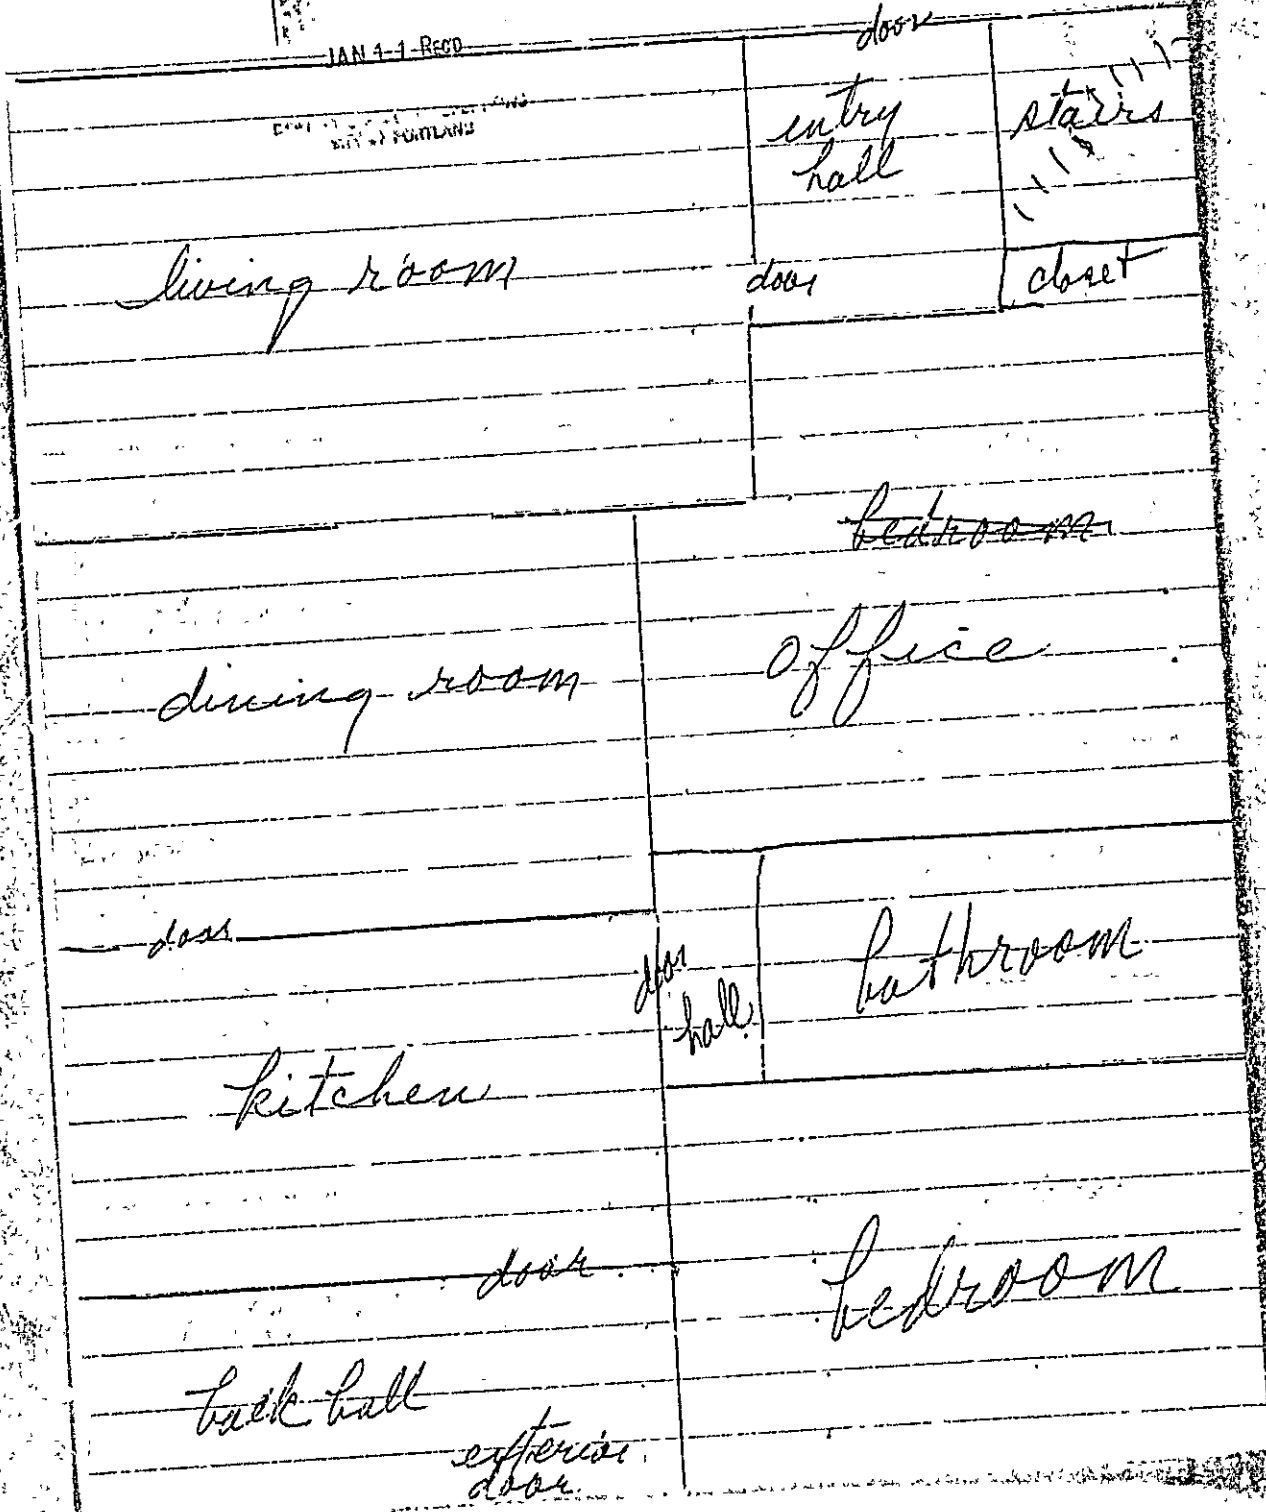 JAN 11 REC'D
CITY OF PORTLAND
door
entry
hall
stairs
living room
door
closet
bedroom
office
dining room
door
door
hall
bathroom
kitchen
door
bedroom
back hall
exterior
door